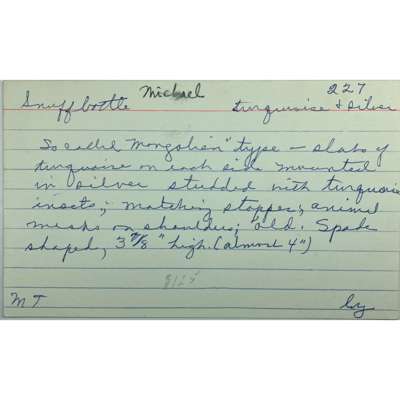 Michael 227
Snuff bottle turquoise & silver
So called "Mongolian" type - slabs of
turquoise on each side mounted
in silver studded with turquoise
insets; matching stopper; animal
masks on shoulder; old. Spade
shaped, 3 7/8" high. (almost 4")
8125
MT